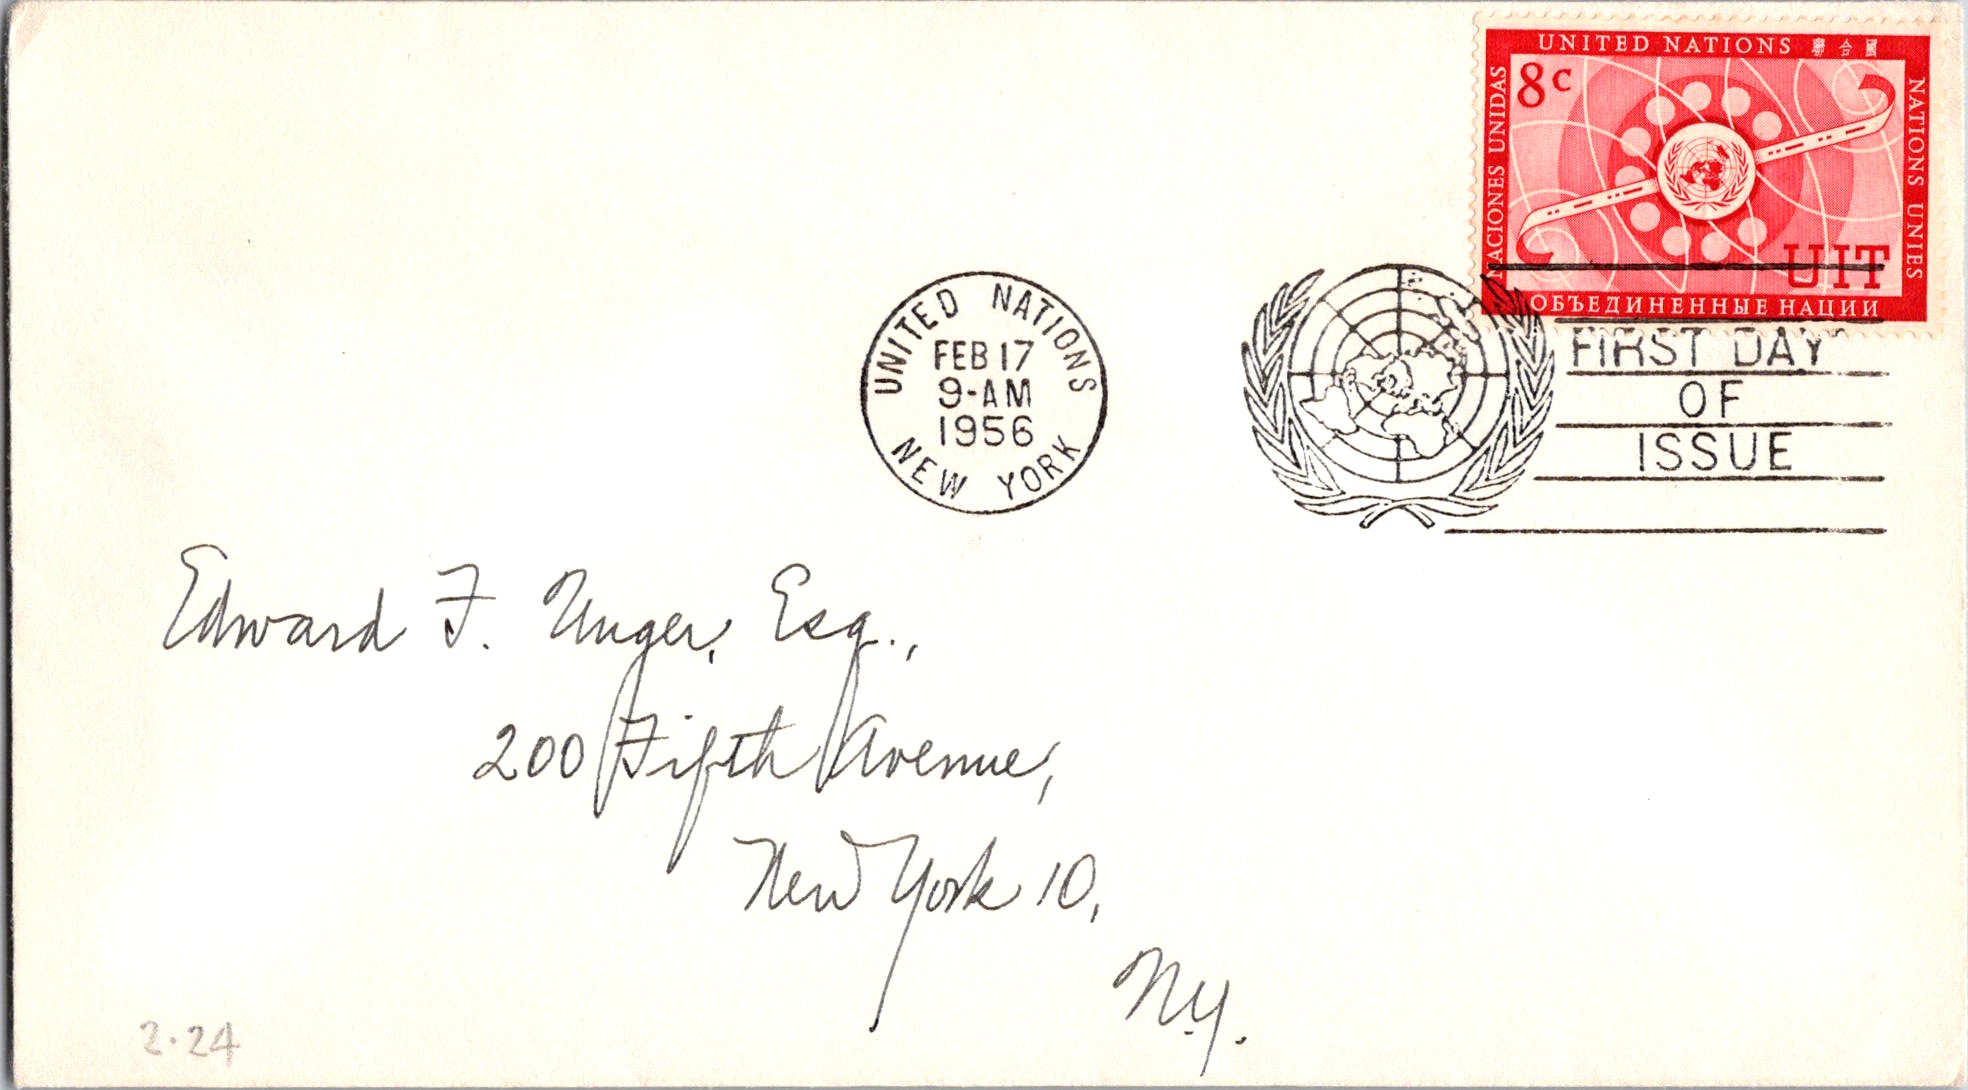 UNITED NATIONS 聯合國
NACIONES UNIDAS
8c
NATIONS UNIES
UIT
ОБЪЕДИНЕННЫЕ НАЦИИ
UNITED NATIONS
FEB 17
9-AM
1956
NEW YORK
FIRST DAY
OF
ISSUE
Edward F. Unger, Esq.,
200 Fifth Avenue,
New York 10,
N.Y.
2.24